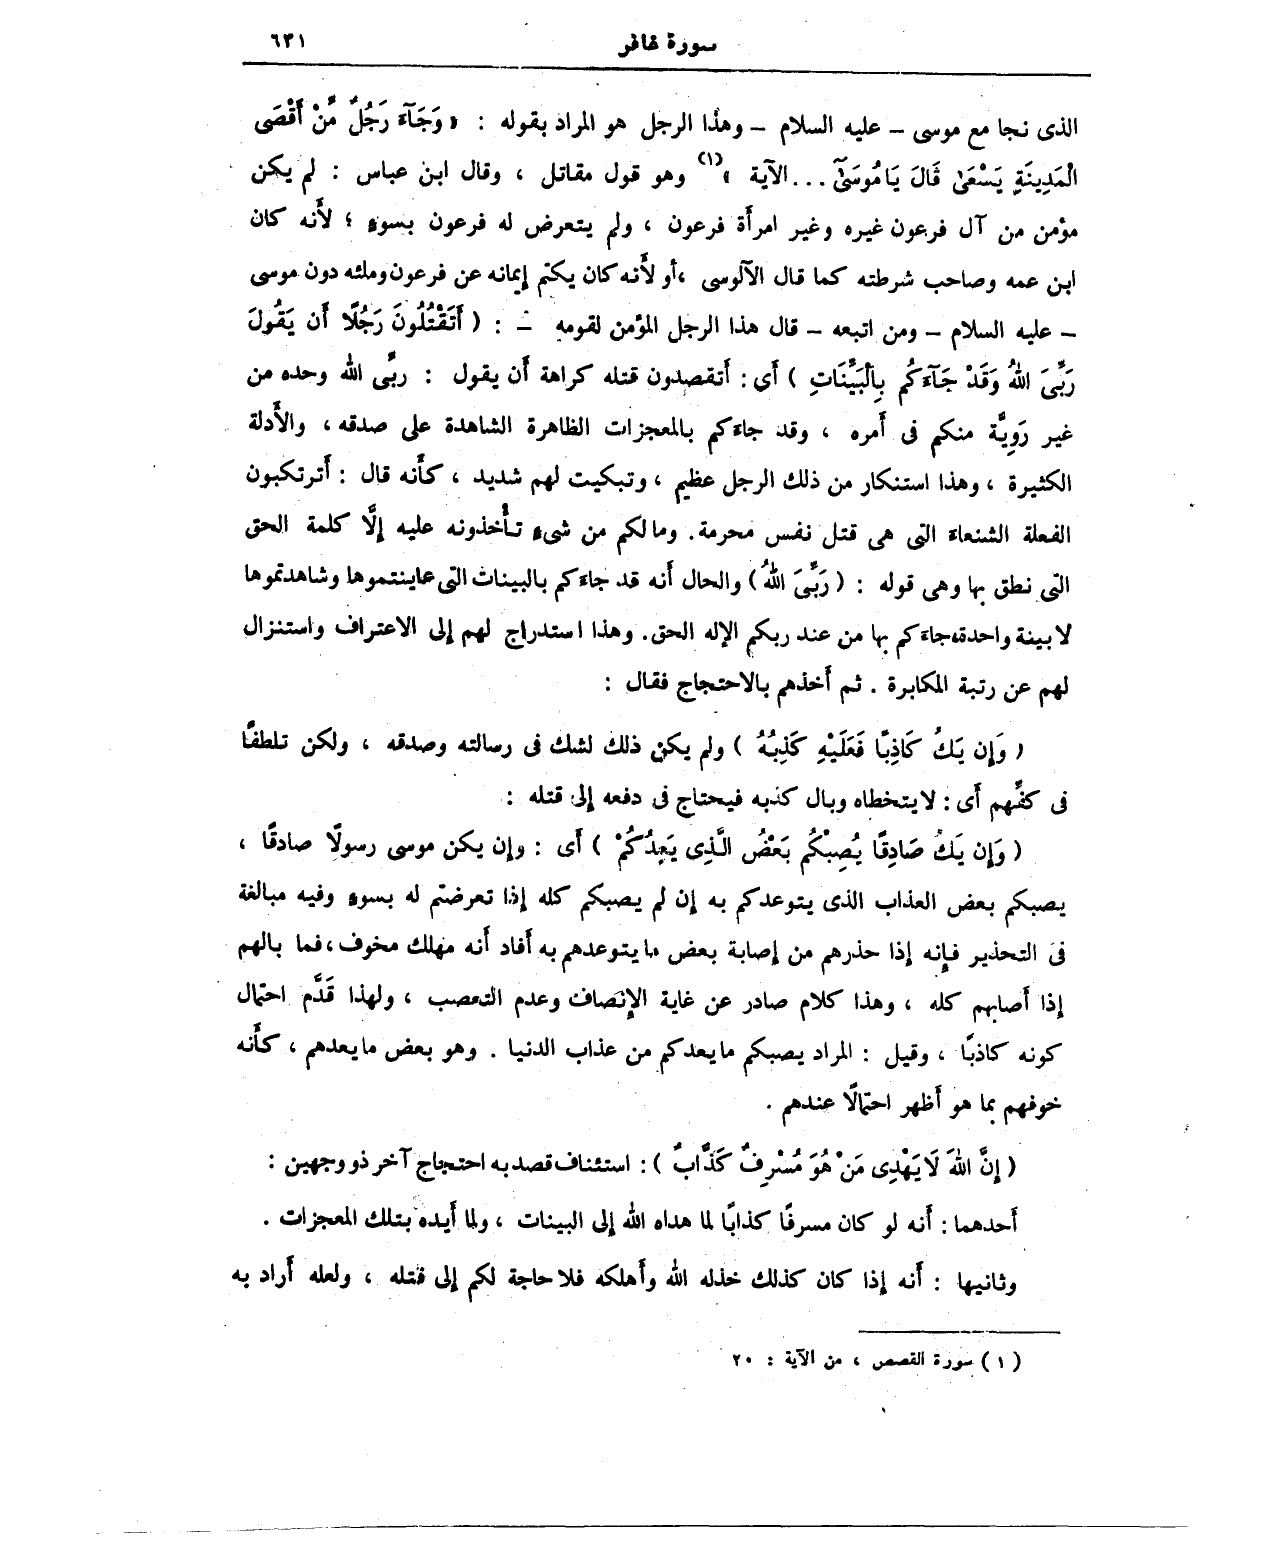 سورة غافر ٦٣١
الذى نجا مع موسى – عليه السلام – وهذا الرجل هو المراد بقوله : « وَجَآءَ رَجُلٌ مِّنْ أَقْصَى
الْمَدِينَةِ يَسْعَىٰ قَالَ يَامُوسَىٰٓ ... الآية » (١) وهو قول مقاتل ، وقال ابن عباس : لم يكن
مؤمن من آل فرعون غيره وغير امرأة فرعون ، ولم يتعرض له فرعون بسوءٍ ؛ لأَنه كان
ابن عمه وصاحب شرطته كما قال الآلوسى ،أو لأَنه كان يكتم إيمانه عن فرعون وملئه دون موسى
– عليه السلام – ومن اتبعه – قال هذا الرجل المؤمن لقومه – : ( أَتَقْتُلُونَ رَجُلًا أَن يَقُولَ
رَبِّىَ اللهُ وَقَدْ جَآءَكُم بِالْبَيِّنَاتِ ) أَى : أَتقصدون قتله كراهة أَن يقول : ربِّى الله وحده من
غير رَوِيَّة منكم فى أَمره ، وقد جاءَكم بالمعجزات الظاهرة الشاهدة على صدقه ، والأَدلة
الكثيرة ، وهذا استنكار من ذلك الرجل عظيم ، وتبكيت لهم شديد ، كأَنه قال : أَترتكبون
الفعلة الشنعاءَ التى هى قتل نفس محرمة. ومالكم من شىءٍ تأْخذونه عليه إلَّا كلمة الحق
التى نطق بها وهى قوله : ( رَبِّىَ اللهُ ) والحال أَنه قد جاءَكم بالبينات التى عاينتموها وشاهدتموها
لا بينة واحدة،جاءَكم بها من عند ربكم الإله الحق. وهذا استدراج لهم إلى الاعتراف واستنزال
لهم عن رتبة المكابرة . ثم أَخذهم بالاحتجاج فقال :
( وَإِن يَكُ كَاذِبًا فَعَلَيْهِ كَذِبُهُ ) ولم يكن ذلك لشك فى رسالته وصدقه ، ولكن تلطفًا
فى كفِّهم أَى : لايتخطاه وبال كذبه فيحتاج فى دفعه إلى قتله :
( وَإِن يَكُ صَادِقًا يُصِبْكُم بَعْضُ الَّذِى يَعِدُكُمْ ) أَى : وإن يكن موسى رسولًا صادقًا ،
يصبكم بعض العذاب الذى يتوعدكم به إن لم يصبكم كله إذا تعرضتم له بسوءٍ وفيه مبالغة
فى التحذير فإنه إذا حذرهم من إصابة بعض مايتوعدهم به أَفاد أَنه مهلك مخوف،فما بالهم
إذا أَصابهم كله ، وهذا كلام صادر عن غاية الإنصاف وعدم التعصب ، ولهذا قَدَّم احتمال
كونه كاذبًا ، وقيل : المراد يصبكم مايعدكم من عذاب الدنيا . وهو بعض مايعدهم ، كأَنه
خوفهم بما هو أَظهر احتمالًا عندهم .
( إِنَّ اللهَ لَا يَهْدِى مَنْ هُوَ مُسْرِفٌ كَذَّابٌ ) : استئناف قصد به احتجاج آخر ذو وجهين :
أَحدهما : أَنه لو كان مسرفًا كذابًا لما هداه الله إلى البينات ، ولما أَيده بتلك المعجزات .
وثانيها : أَنه إذا كان كذلك خذله الله وأَهلكه فلا حاجة لكم إلى قتله ، ولعله أَراد به
( ١ ) سورة القصص ، من الآية : ٢٠